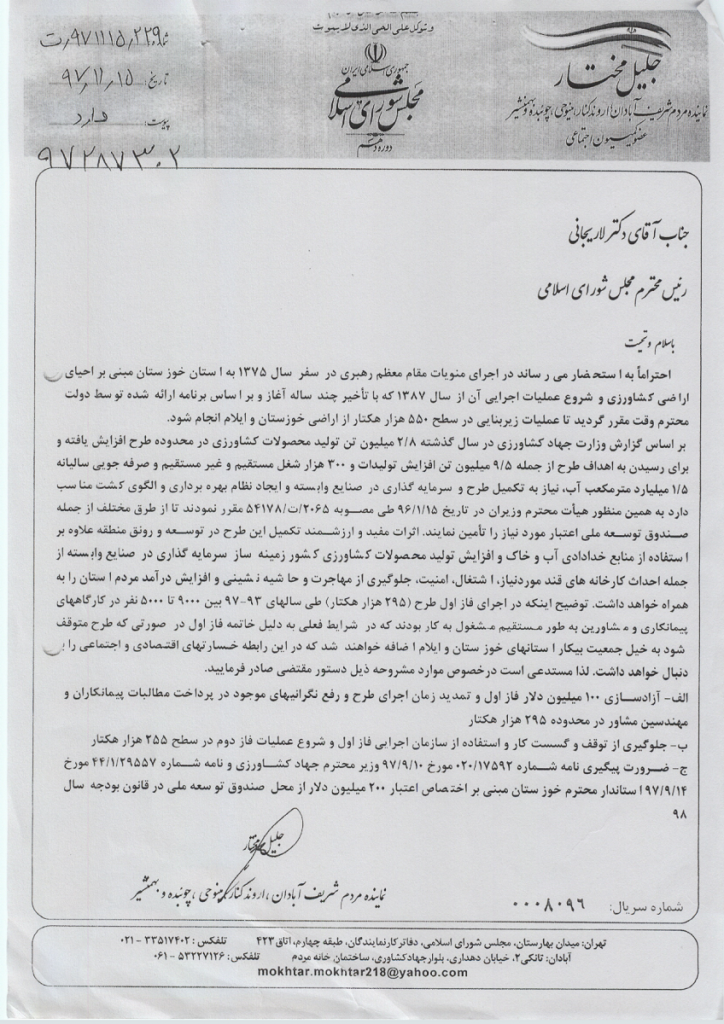 وتوکل علی الحی الذی لایموت
جمهوری اسلامی ایران
مجلس شورای اسلامی
دوره دهم
جلیل مختار
نماینده مردم شریف آبادان، اروندکنار، منیوحی، چوئبده و بهمنشیر
عضو کمیسیون اجتماعی
شماره: ۹۷۱۱۱۵٫۲۲۹٫ت
تاریخ: ۹۷٫۱۱٫۱۵
پیوست: دارد
۹۷۲۸۷۳۰۲
جناب آقای دکتر لاریجانی
رئیس محترم مجلس شورای اسلامی
باسلام و تحیت
احتراماً به استحضار می رساند در اجرای منویات مقام معظم رهبری در سفر سال ۱۳۷۵ به استان خوزستان مبنی بر احیای
اراضی کشاورزی و شروع عملیات اجرایی آن از سال ۱۳۸۷ که با تأخیر چند ساله آغاز و بر اساس برنامه ارائه شده توسط دولت
محترم وقت مقرر گردید تا عملیات زیربنایی در سطح ۵۵۰ هزار هکتار از اراضی خوزستان و ایلام انجام شود.
بر اساس گزارش وزارت جهاد کشاورزی در سال گذشته ۲/۸ میلیون تن تولید محصولات کشاورزی در محدوده طرح افزایش یافته و
برای رسیدن به اهداف طرح از جمله ۹/۵ میلیون تن افزایش تولیدات و ۳۰۰ هزار شغل مستقیم و غیر مستقیم و صرفه جویی سالیانه
۱/۵ میلیارد مترمکعب آب، نیاز به تکمیل طرح و سرمایه گذاری در صنایع وابسته و ایجاد نظام بهره برداری و الگوی کشت مناسب
دارد به همین منظور هیأت محترم وزیران در تاریخ ۹۶/۱/۱۵ طی مصوبه ۲۰۶۵/ت/۵۴۱۷۸ مقرر نمودند تا از طرق مختلف از جمله
صندوق توسعه ملی اعتبار مورد نیاز را تأمین نمایند. اثرات مفید و ارزشمند تکمیل این طرح در توسعه و رونق منطقه علاوه بر
استفاده از منابع خدادادی آب و خاک و افزایش تولید محصولات کشاورزی کشور زمینه ساز سرمایه گذاری در صنایع وابسته از
جمله احداث کارخانه های قند موردنیاز، اشتغال، امنیت، جلوگیری از مهاجرت و حاشیه نشینی و افزایش درآمد مردم استان را به
همراه خواهد داشت. توضیح اینکه در اجرای فاز اول طرح (۲۹۵ هزار هکتار) طی سالهای ۹۳-۹۷ بین ۹۰۰۰ تا ۵۰۰۰ نفر در کارگاههای
پیمانکاری و مشاورین به طور مستقیم مشغول به کار بودند که در شرایط فعلی به دلیل خاتمه فاز اول در صورتی که طرح متوقف
شود به خیل جمعیت بیکار استانهای خوزستان و ایلام اضافه خواهند شد که در این رابطه خسارتهای اقتصادی و اجتماعی را به
دنبال خواهد داشت. لذا مستدعی است درخصوص موارد مشروحه ذیل دستور مقتضی صادر فرمایید.
الف- آزادسازی ۱۰۰ میلیون دلار فاز اول و تمدید زمان اجرای طرح و رفع نگرانیهای موجود در پرداخت مطالبات پیمانکاران و
مهندسین مشاور در محدوده ۲۹۵ هزار هکتار
ب- جلوگیری از توقف و گسست کار و استفاده از سازمان اجرایی فاز اول و شروع عملیات فاز دوم در سطح ۲۵۵ هزار هکتار
ج- ضرورت پیگیری نامه شماره ۰۲۰/۱۷۵۹۲ مورخ ۹۷/۹/۱۰ وزیر محترم جهاد کشاورزی و نامه شماره ۴۴/۱/۲۹۵۵۷ مورخ
۹۷/۹/۱۴ استاندار محترم خوزستان مبنی بر اختصاص اعتبار ۲۰۰ میلیون دلار از محل صندوق توسعه ملی در قانون بودجه سال
۹۸
جلیل مختار
نماینده مردم شریف آبادان، اروندکنار، منیوحی، چوئبده و بهمنشیر
شماره سریال: ۰۰۰۸۰۹۶
تهران: میدان بهارستان، مجلس شورای اسلامی، دفاتر کارنمایندگان، طبقه چهارم، اتاق ۴۲۳ تلفکس: ۳۳۵۱۷۴۰۲ - ۰۲۱
آبادان: تانکی۲، خیابان دهداری، بلوار جهادکشاوری، ساختمان خانه مردم تلفکس: ۵۳۲۲۷۱۲۶ - ۰۶۱
mokhtar.mokhtar218@yahoo.com